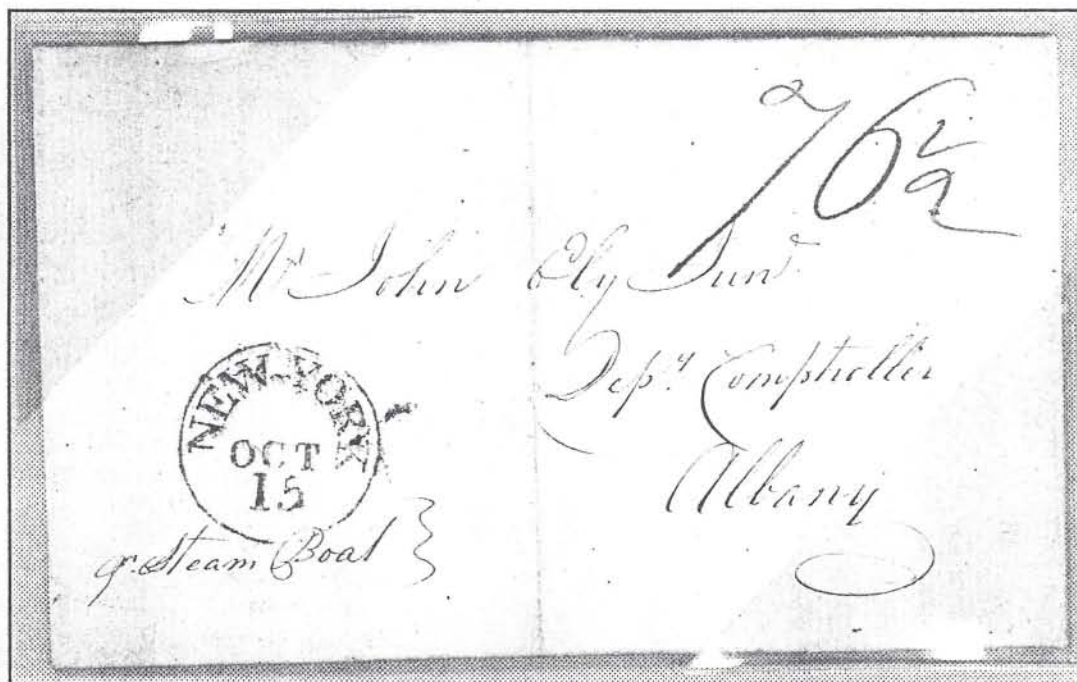 76 1/2
Mr John Ely Junr
Depy Comptroller
Albany
NEW-YORK
OCT
15
pr. Steam Boat